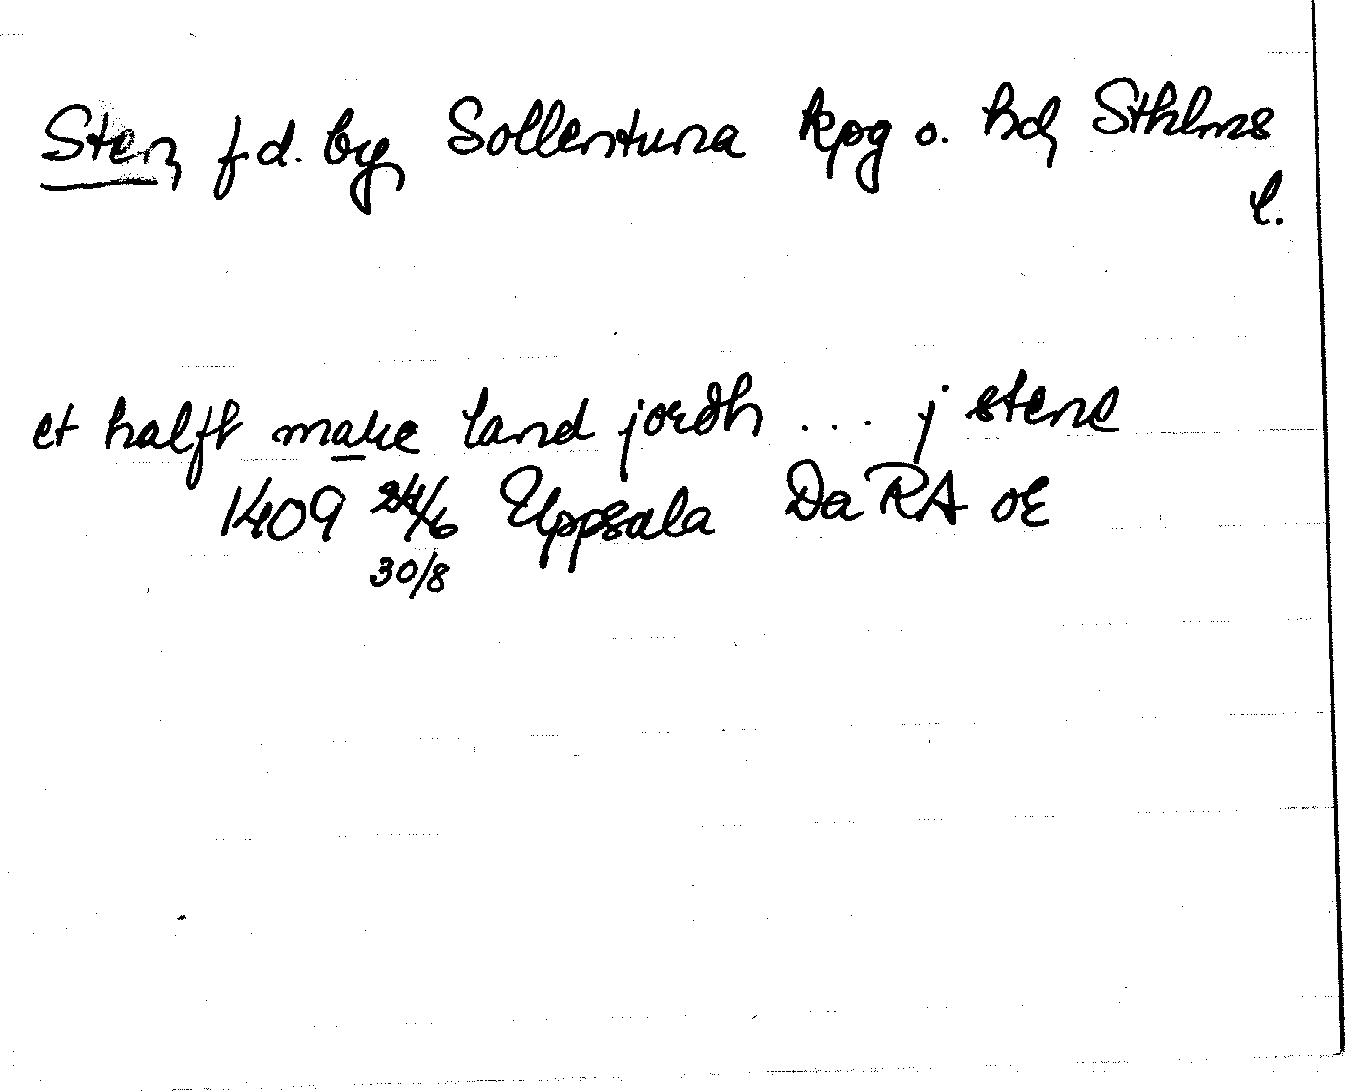 Sten, f.d. by, Sollentuna kpg o. hd, Sthlms
l.
et halft make land jordh ... j stens
1409 24/6 Uppsala Da RA or
30/8